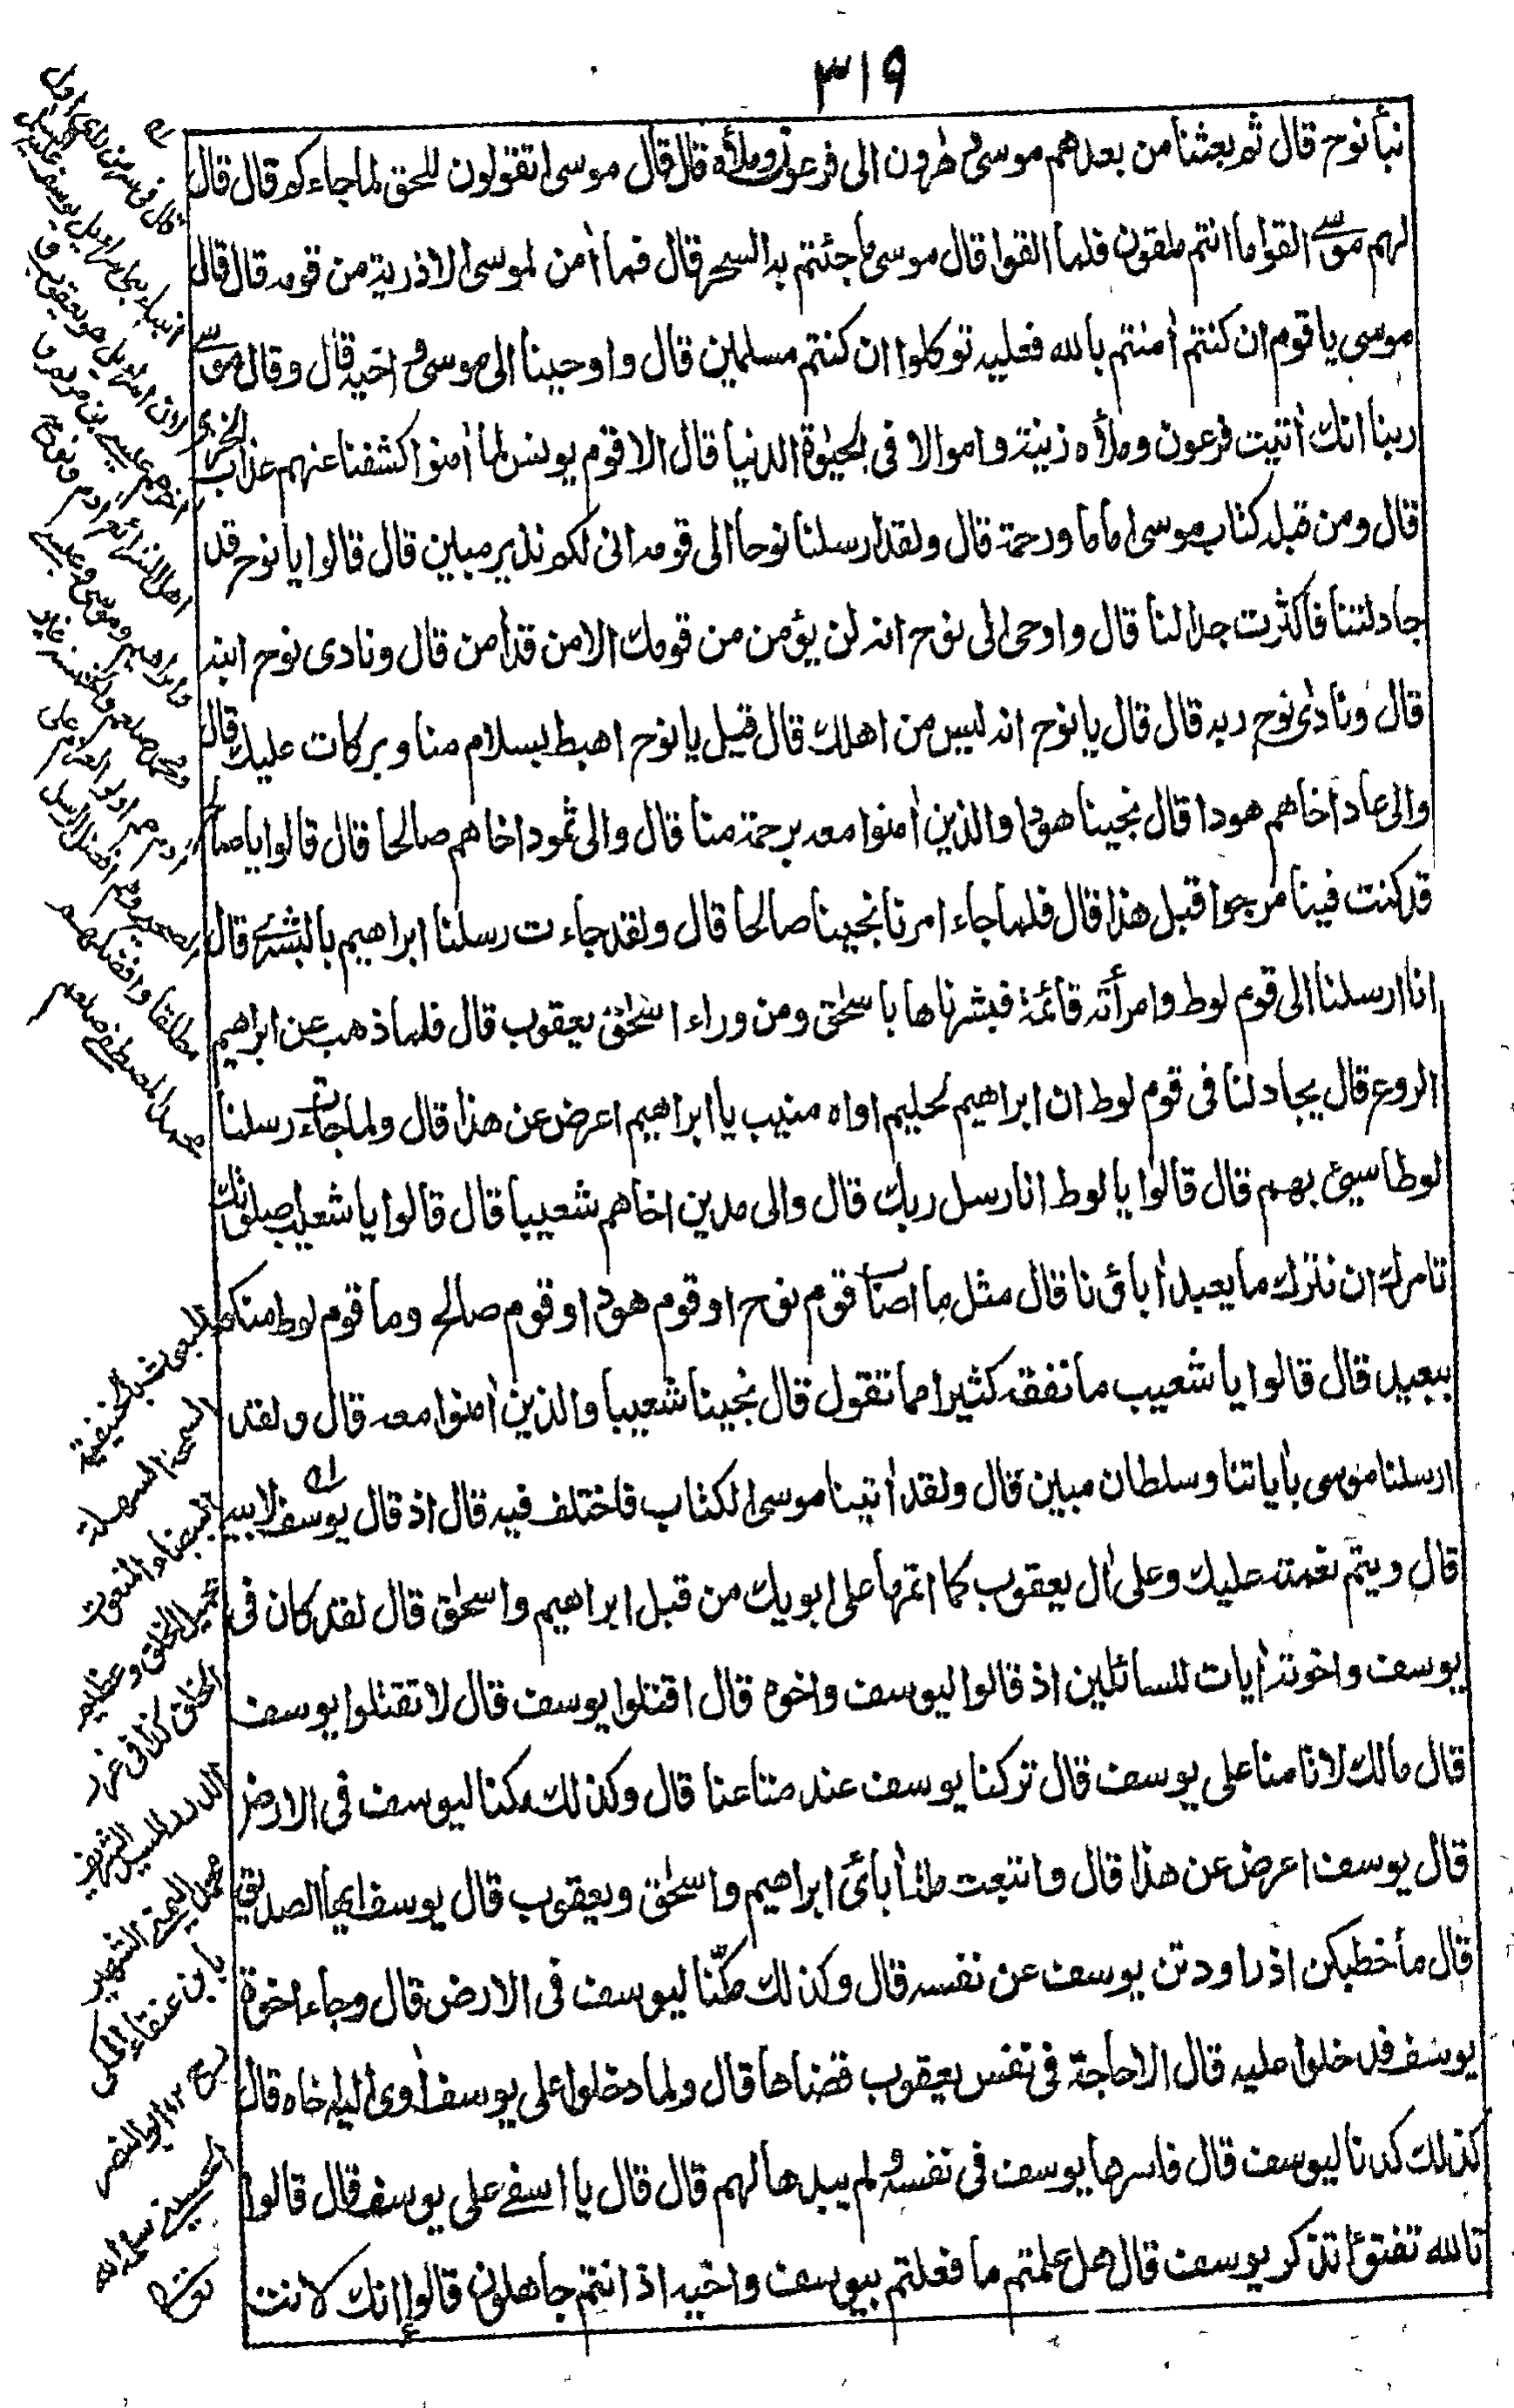 ٣١٩
نبأ نوح قال ثم بعثنا من بعدهم موسى وهرون الى فرعون وملأه قال قال موسى اتقولون للحق لما جاءكم قال قال
لهم موسى القوا ما انتم ملقون فلما القوا قال موسى ما جئتم به السحر قال فما أمن لموسى الا ذرية من قومه قال قال
موسى يا قوم ان كنتم أمنتم بالله فعليه توكلوا ان كنتم مسلمين قال واوحينا الى موسى واخيه قال وقال موسى
ربنا انك أتيت فرعون وملأه زينة واموالا فى الحيوة الدنيا قال الا قوم يونس لما أمنوا كشفنا عنهم عذاب الخزى
قال ومن قبله كتاب موسى اماما ورحمة قال ولقد ارسلنا نوحا الى قومه انى لكم نذير مبين قال قالوا يا نوح قد
جادلتنا فاكثرت جدالنا قال واوحى الى نوح انه لن يؤمن من قومك الا من قد أمن قال ونادى نوح ابنه
قال ونادى نوح ربه قال قال يا نوح انه ليس من اهلك قال قيل يا نوح اهبط بسلام منا وبركات عليك قال
والى عاد اخاهم هودا قال نجينا هودا والذين أمنوا معه برحمة منا قال والى ثمود اخاهم صالحا قال قالوا يا صالح
قد كنت فينا مرجوا قبل هذا قال فلما جاء امرنا نجينا صالحا قال ولقد جاءت رسلنا ابراهيم بالبشرى قال
انا ارسلنا الى قوم لوط وامرأته قائمة فبشرناها باسحٰق ومن وراء اسحٰق يعقوب قال فلما ذهب عن ابراهيم
الروع قال يجادلنا فى قوم لوط ان ابراهيم لحليم اواه منيب يا ابراهيم اعرض عن هذا قال ولما جاءت رسلنا
لوطا سيئ بهم قال قالوا يا لوط انا رسل ربك قال والى مدين اخاهم شعيبا قال قالوا يا شعيب اصلوتك
تامرك ان نترك ما يعبد أباؤنا قال مثل ما اصاب قوم نوح او قوم هود او قوم صالح وما قوم لوط منكم
ببعيد قال قالوا يا شعيب ما نفقه كثيرا مما تقول قال نجينا شعيبا والذين أمنوا معه قال ولقد
ارسلنا موسى بأياتنا وسلطان مبين قال ولقد أتينا موسى الكتاب فاختلف فيه قال اذ قال يوسف لابيه
قال ويتم نعمته عليك وعلى أل يعقوب كما اتمها على ابويك من قبل ابراهيم واسحٰق قال لقد كان فى
يوسف واخوته أيات للسائلين اذ قالوا ليوسف واخوه قال اقتلوا يوسف قال لا تقتلوا يوسف
قال مالك لا تامنا على يوسف قال تركنا يوسف عند متاعنا قال وكذلك مكنا ليوسف فى الارض
قال يوسف اعرض عن هذا قال واتبعت ملة أبائى ابراهيم واسحٰق ويعقوب قال يوسف ايها الصديق
قال ما خطبكن اذ راودتن يوسف عن نفسه قال وكذلك مكّنا ليوسف فى الارض قال وجاء اخوة
يوسف فدخلوا عليه قال الا حاجة فى نفس يعقوب قضاها قال ولما دخلوا على يوسف أوى اليه اخاه قال
كذلك كدنا ليوسف قال فاسرها يوسف فى نفسه ولم يبدها لهم قال قال يا اسفى على يوسف قال قالوا
تالله تفتؤ تذكر يوسف قال هل علمتم ما فعلتم بيوسف واخيه اذ انتم جاهلون قالوا إانك لانت
انبياء بنى اسرائيل يوسف
لان اسرائيل هو يعقوب
عيسى بن مريم
وابراهيم وموسى وعيسى
مطلقا وافضلهم
محمد المصطفى صلعم
المبعوث بالحنيفية
السمحة السهلة
البيضاء المنعوت
بجميل الخلق وعظيم
الخلق كذا فى غرر
الدرر للسيد الشريف